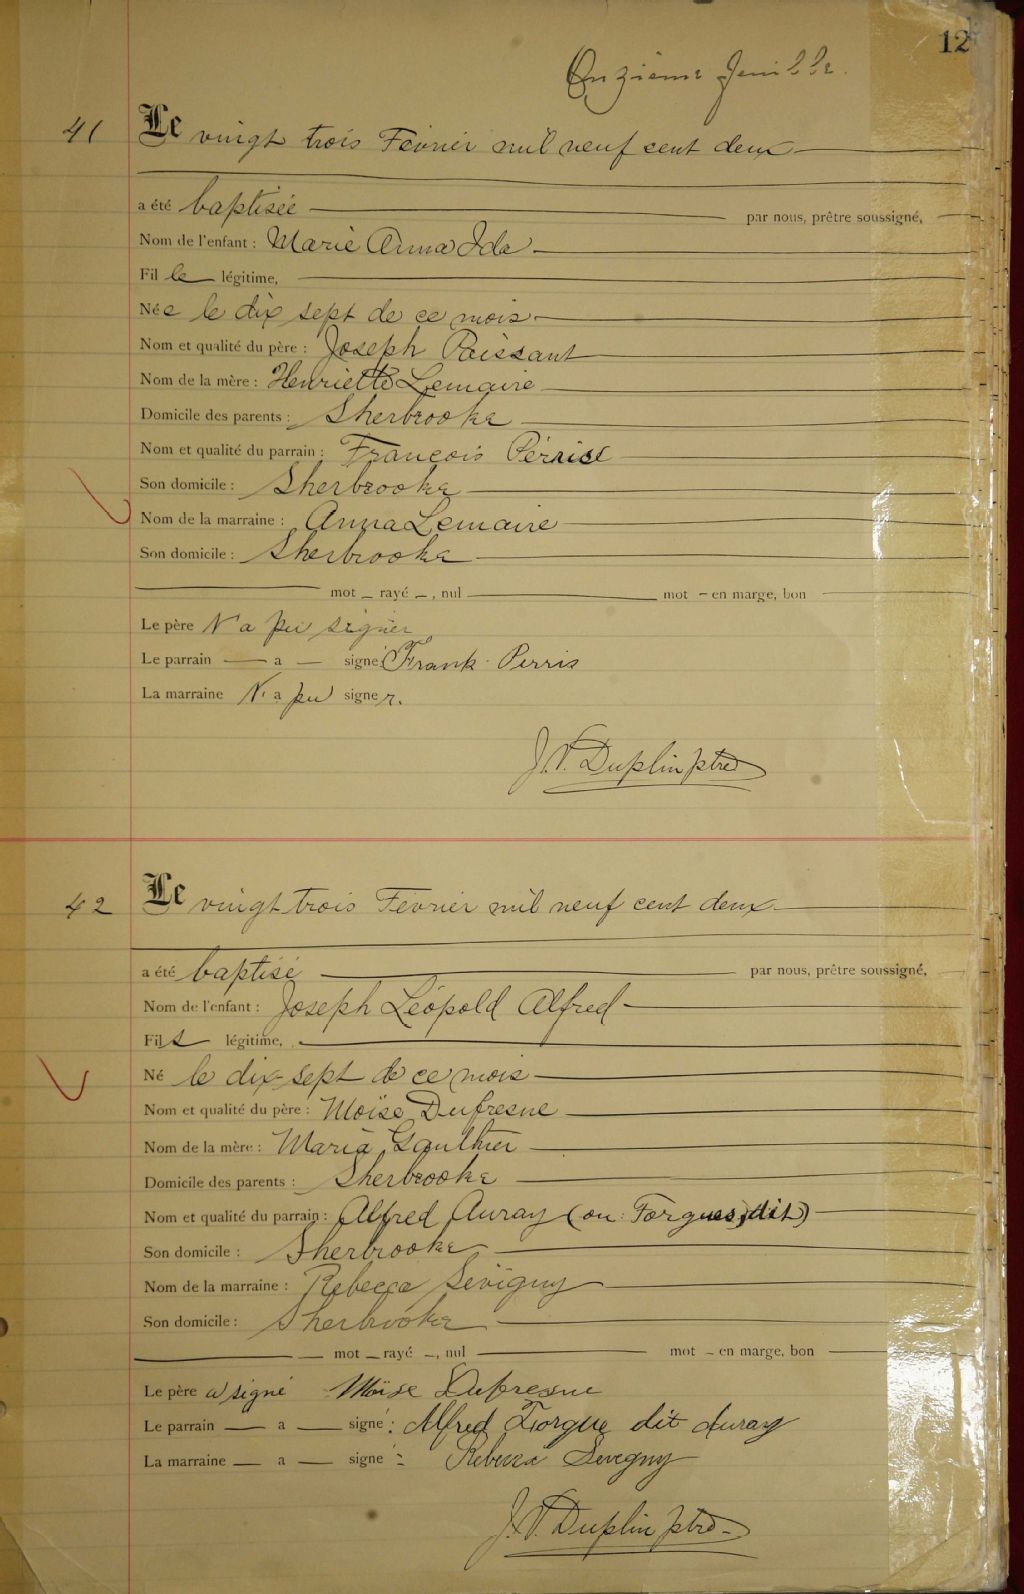 12
Onzième feuille.
41 Le vingt trois Février mil neuf cent deux
a été baptisée par nous, prêtre soussigné,
Nom de l'enfant : Marie Anna Ida
Fil le légitime,
Née le dix sept de ce mois
Nom et qualité du père : Joseph Paissant
Nom de la mère : Henriette Lemaire
Domicile des parents : Sherbrooke
Nom et qualité du parrain : François
Son domicile : Sherbrooke
Nom de la marraine : Anna Lemaire
Son domicile : Sherbrooke
mot – rayé –, nul mot – en marge, bon
Le père N'a pu signer
Le parrain — a — signé: Frank Perris
La marraine N'a pu signer.
J. V. Duplin ptre
42 Le vingt trois Février mil neuf cent deux
a été baptisé par nous, prêtre soussigné,
Nom de l'enfant : Joseph Léopold Alfred
Fils légitime,
Né le dix-sept de ce mois
Nom et qualité du père : Moïse Dufresne
Nom de la mère : Maria Gaulthier
Domicile des parents : Sherbrooke
Nom et qualité du parrain : Alfred Auray (ou: Forgues, dit)
Son domicile : Sherbrooke
Nom de la marraine : Rebecca Sévigny
Son domicile : Sherbrooke
mot – rayé –, nul mot – en marge, bon
Le père a signé Moïse Dufresne
Le parrain — a — signé : Alfred Forgue dit Auray
La marraine — a — signé : Sevegny
J. V. Duplin ptre